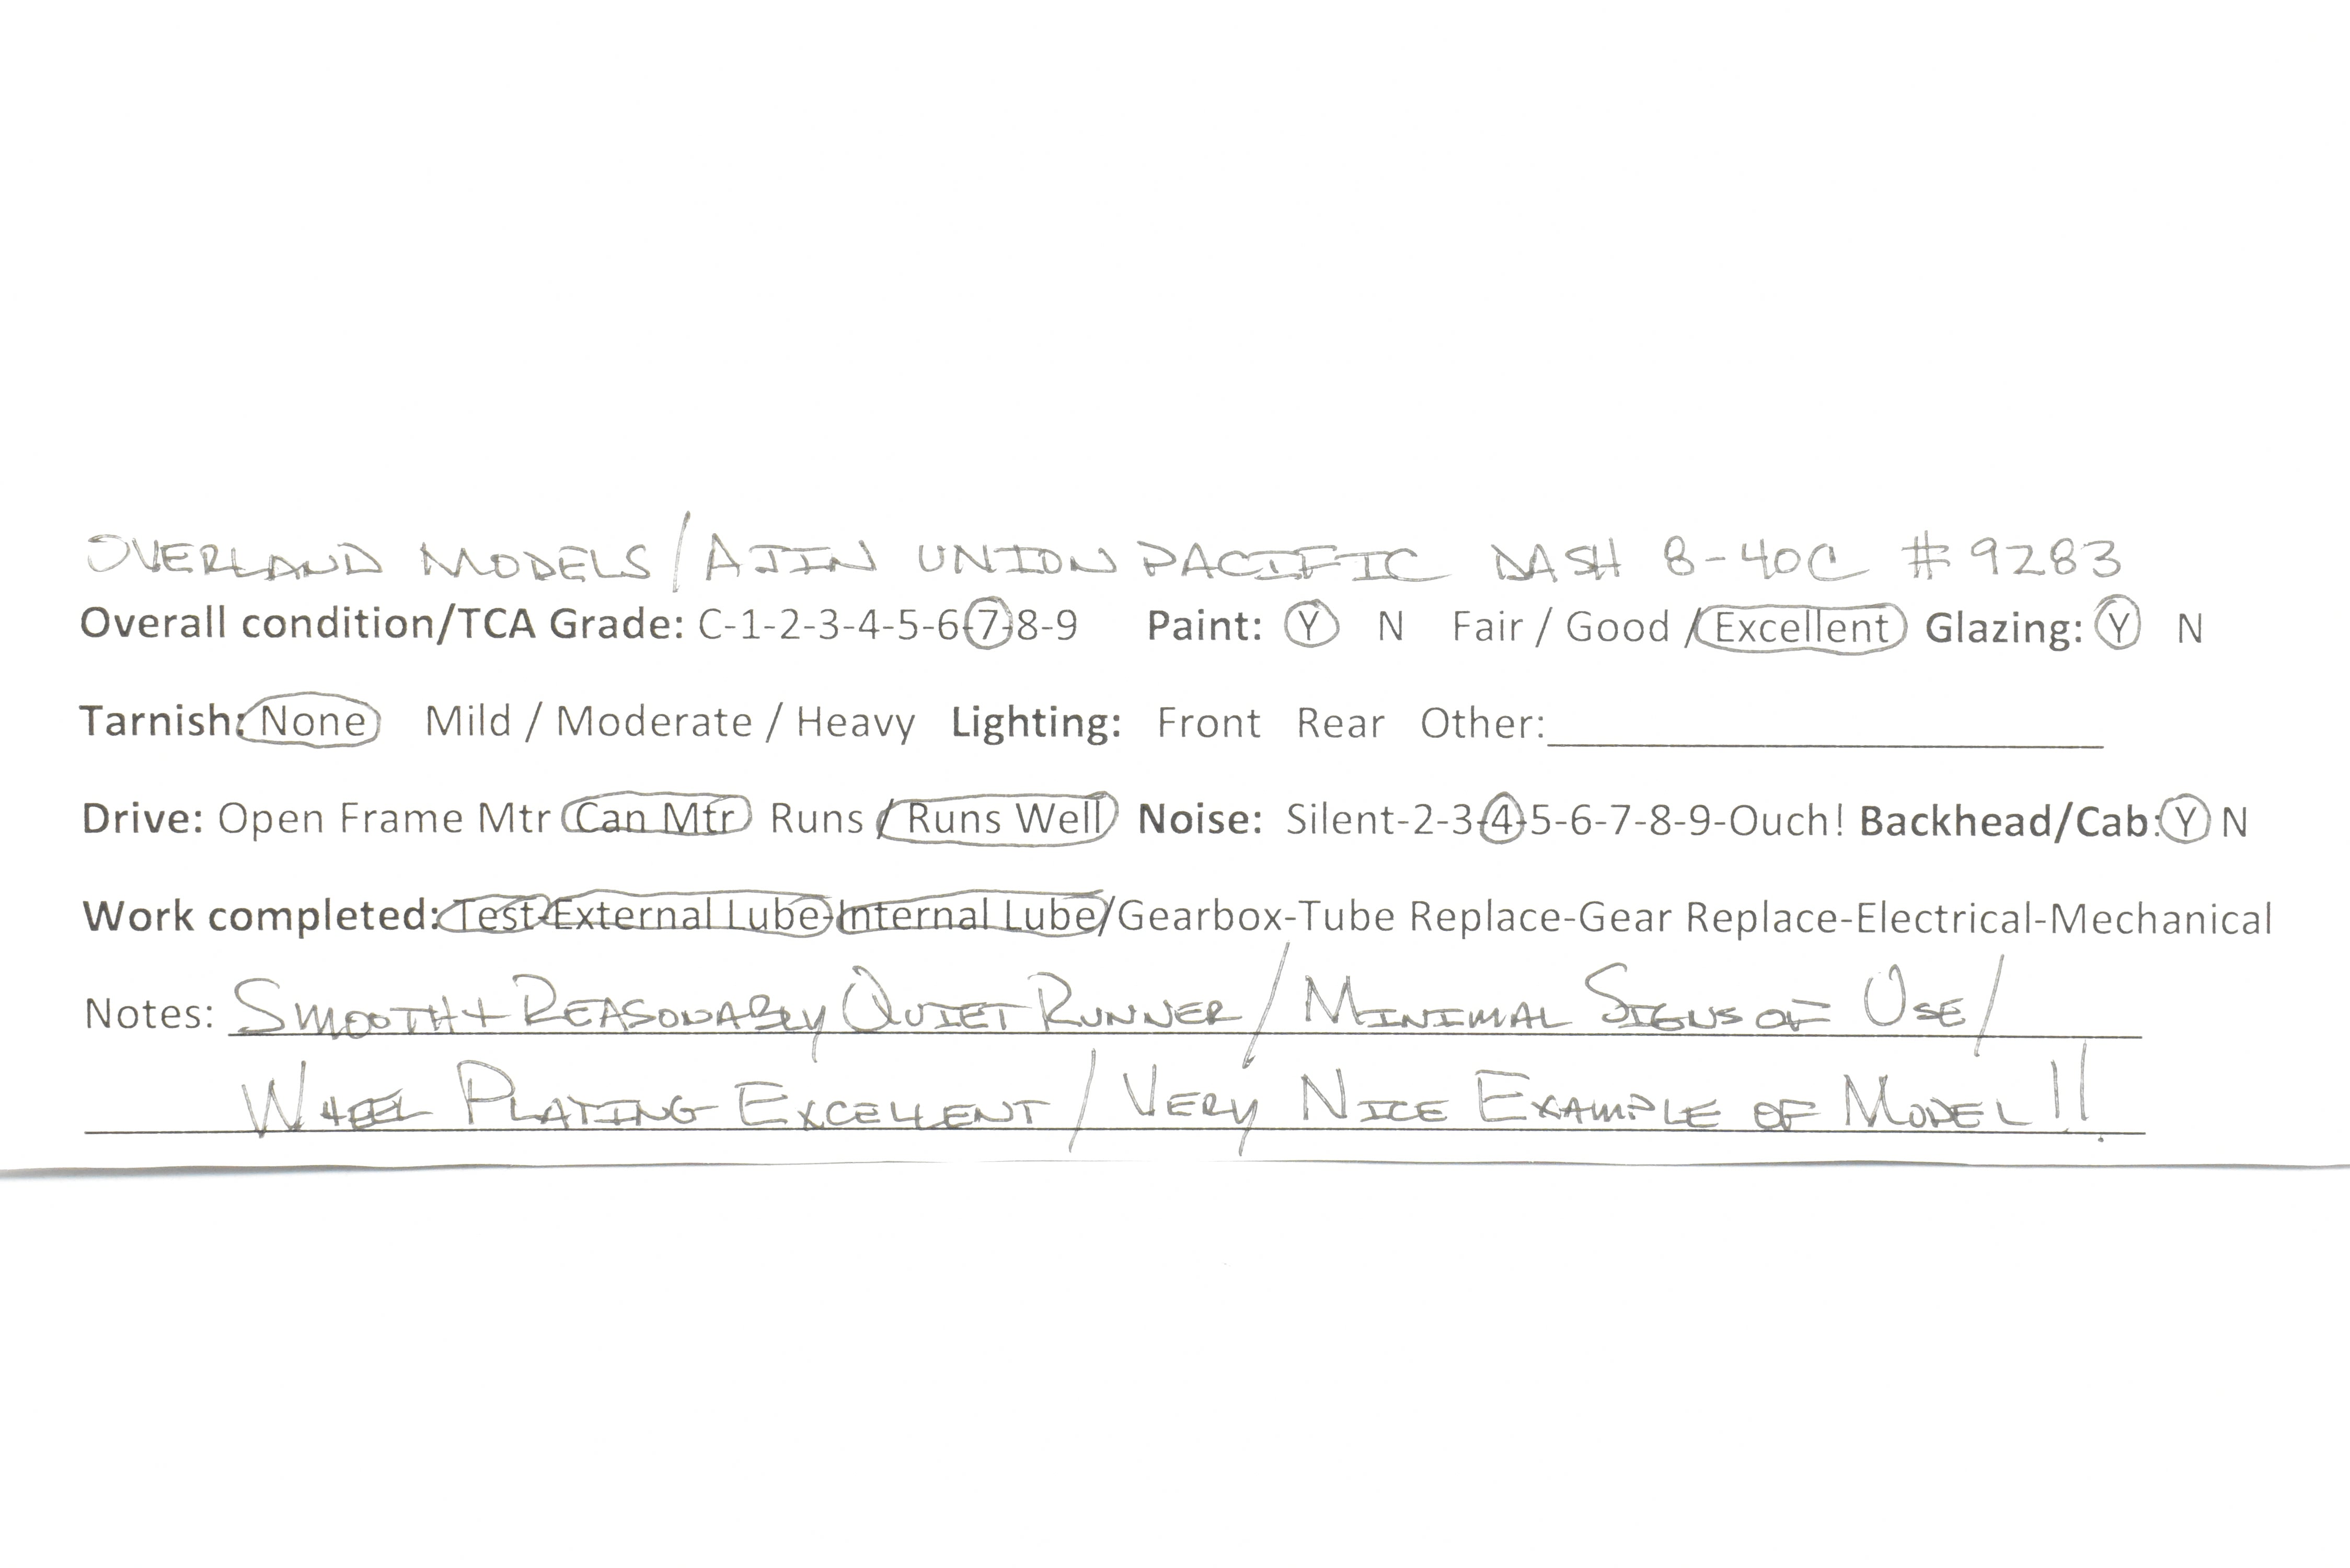 OVERLAND MODELS/AJIN UNION PACIFIC DASH 8-40C #9283
Overall condition/TCA Grade: C-1-2-3-4-5-6-7-8-9 Paint: Y N Fair / Good / Excellent Glazing: Y N
Tarnish: None Mild / Moderate / Heavy Lighting: Front Rear Other:
Drive: Open Frame Mtr Can Mtr Runs / Runs Well Noise: Silent-2-3-4-5-6-7-8-9-Ouch! Backhead/Cab: Y N
Work completed: Test-External Lube-Internal Lube/Gearbox-Tube Replace-Gear Replace-Electrical-Mechanical
Notes: SMOOTH + REASONABLY QUIET RUNNER / MINIMAL SIGNS OF USE /
WHEEL PLATING EXCELLENT / VERY NICE EXAMPLE OF MODEL!!